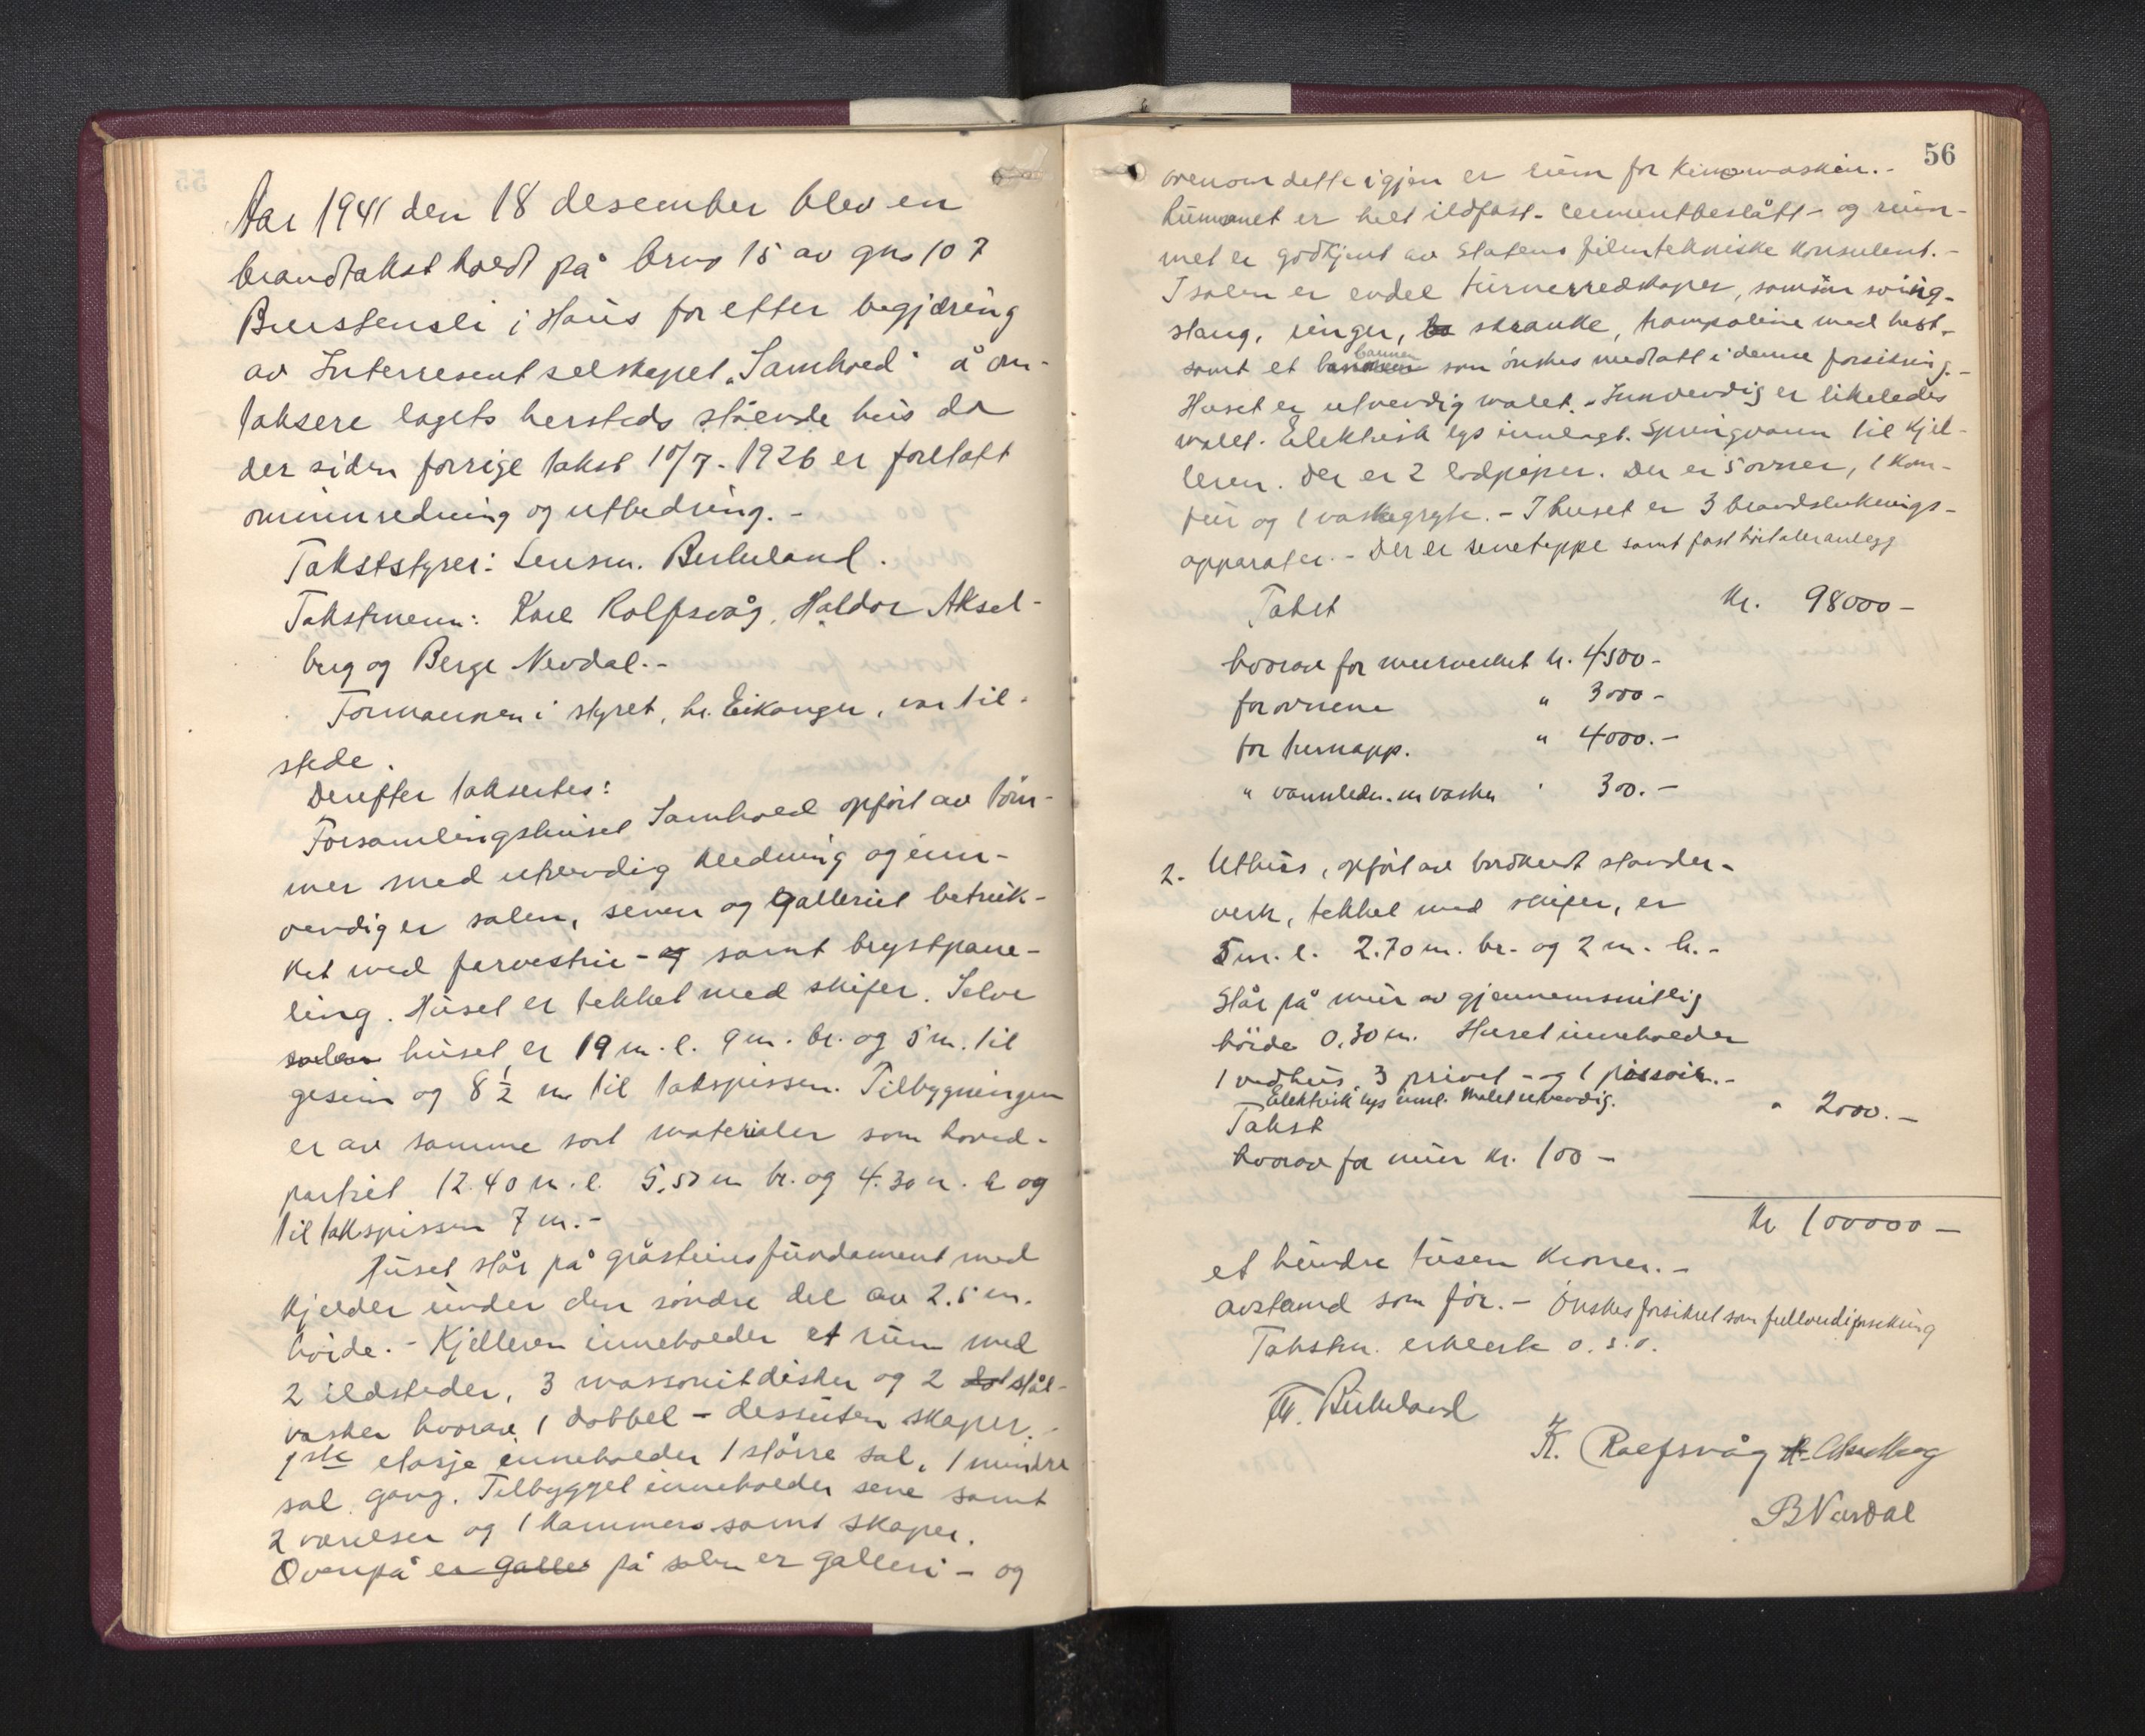 Aar 1941 den 18 desember blev en
brandtakst holdt på brno 15 av gno 107
Burstensli i Haus for efter begjæring
av Interresentselskapet „Samhold" å om-
taksere lagets hersteds stående hus da
der siden forrige takst 10/7. 1926 er foretatt
ominnredning og utbedring. -
Takststyrer: Lensm. Birkeland.
Takstmenn: Karl Rolfsvåg, Haldor Aksel-
berg og Berge Nevdal. -
Formannen i styret, hr. Eikanger, var til-
stede.
Derefter taksertes:
Forsamlingshuset Samhold opført av töm-
mer med utvendig kledning og inn-
vendig er salen, senen og galleriet betruk-
ket med farvestrie - og samt brystpane-
ling. Huset er tekket med skifer. Selve
salen huset er 19 m. l. 9 m. br. og 5 m. til
gesims og 8 ½ m til takspissen. Tilbygningen
er av samme sort materialer som hoved-
partiet 12.40 m. l. 5.50 m br. og 4.30 m. h og
til takspissen 7 m. -
Huset står på gråsteinsfundament med
kjelder under den söndre del av 2.5 m.
höide. - Kjelleren inneholder et rum med
2 ildsteder, 3 massonitdisker og 2 stål-
vasker hvorav 1 dobbel - dessuten skaper. -
1ste etasje inneholder 1 större sal, 1 mindre
sal, gang. Tilbygget inneholder sene samt
2 værelser og 1 kammers samt skaper.
Ovenpå er galle på salen er galleri - og
56
ovenom dette igjen er rum for kinomaskin. -
Rummet er helt ildfast - cementbeslått - og rum-
met er godkjent av Statens filmtekniske konsulent. -
I salen er endel turnerredskaper, såsom sving-
stang, ringer, skranke, trampoline med hest -
samt et banner som önskes medtatt i denne forsikring. -
Huset er utvendig malt. - Innvendig er likeledes
malt. Elektrisk lys innlagt. Springvann til kjel-
leren. Der er 2 lodpiper. Der er 5 ovner, 1 kom-
fur og 1 vaskegryte. - I huset er 3 brandslukkings-
apparater. - Der er seneteppe samt fast höitaleranlegg
Takst Kr. 98000 -
hvorav for murverket kr. 4500 -
for ovnene " 3000 -
for turnapp. " 4000. -
" vannledn. m vasker " 300. -
2. Uthus, opfört av bordkledt stender-
verk, tekket med skifer, er
5 m. l. 2.70 m. br. og 2 m. h. -
Står på mur av gjennemsnitlig
höide 0.30 m. Huset inneholder
1 vedhus, 3 privet - og 1 pissoir. -
Elektrisk lys innl. Malt utvendig.
Takst " 2000. -
hvorav for mur kr. 100 -
Kr 100000 -
et hundre tusen kroner. -
avstand som för. - Önskes forsikret som fullverdiforsikring
Takstm. erklærte o. s. v.
Birkeland
K. Rolfsvåg H. Akselberg
B Nevdal